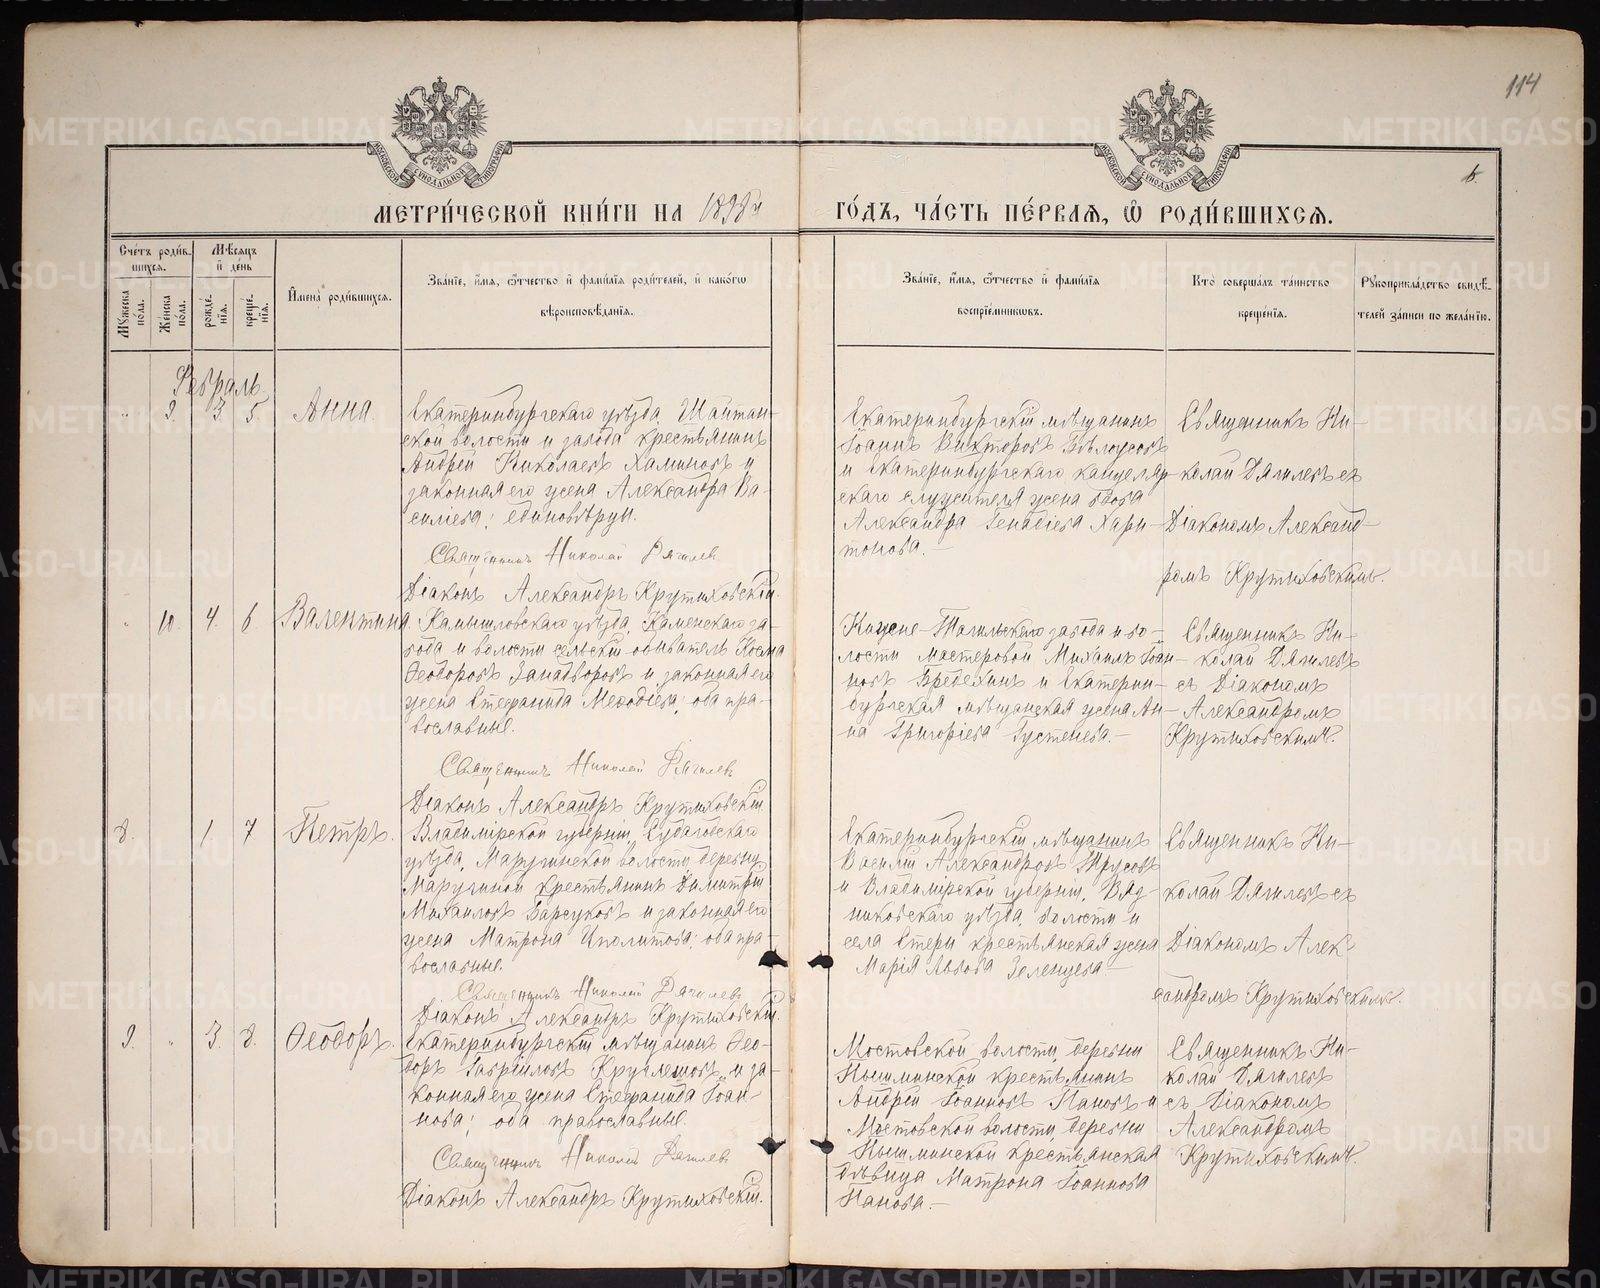 114
МОСКОВСКОЙ СѴНОДАЛЬНОЙ ТИПОГРАФІИ
МОСКОВСКОЙ СѴНОДАЛЬНОЙ ТИПОГРАФІИ
МЕТРИ́ЧЕСКОЙ КНИ́ГИ НА 1898й
ГО́ДЪ, ЧА́СТЬ ПЕ́РВАЯ, Ѡ РОДИ́ВШИХСЯ.
Сче́тъ роди́в-
шихся.
Мужеска
по́ла.
Же́нска
по́ла.
Мѣсяцъ
и́ де́нь
рожде́-
нія.
креще́-
нія.
Имена̀ роди́вшихся.
Зва́ніе, и́мя, ѻ́тчество и́ фами́лія роди́телей, и́ како́гѡ
вѣроисповѣ́данія.
Зва́ніе, и́мя, ѻ́тчество и́ фами́лія
воспріе́мниковъ.
Кто̀ соверша́лъ та́инство
креще́нія.
Рукоприкла́дство свидѣ́-
телей за́писи по жела́нію.
Февраль
" 9. 3 5 Анна.
Екатеринбургскаго уѣзда, Шайтан-
ской волости и завода крестьянинъ
Андрей Николаевъ Халиновъ и
законная его жена Александра Ва-
силіева; единовѣрцы.
Священникъ Николай Дягилевъ
Діаконъ Александръ Крутиховскій.
Екатеринбургскій мѣщанинъ
Іоаннъ Викторовъ Бѣлоусовъ
и Екатеринбургскаго канцеляр-
скаго служителя жена вдова
Александра Генадіева Хари-
тонова.—
Священникъ Ни-
колай Дягилевъ съ
Діакономъ Александ-
ромъ Крутиховскимъ.
" 10. 4. 6. Валентина.
Камышловскаго уѣзда, Каменскаго за-
вода и волости сельскій обыватель Косма
Ѳеодоровъ Занадворовъ и законная его
жена Стефанида Меѳодіева; оба пра-
вославные.
Священникъ Николай Дягилевъ
Діаконъ Александръ Крутиховскій
Нижне-Тагильскаго завода и во-
лости мастеровой Михаилъ Іоан-
новъ Бревехинъ и Екатерин-
бургская мѣщанская жена Ан-
на Григоріева Густенева.—
Священникъ Ни-
колай Дягилевъ
съ Діакономъ
Александромъ
Крутиховскимъ.
8. 1. 7 Петръ.
Владимірской губерніи, Судогодскаго
уѣзда, Маругинской волости, деревни
Маругиной крестьянинъ Димитрій
Михаиловъ Барсуковъ и законная его
жена Матрона Иполитова; оба пра-
вославные.
Священникъ Николай Дягилевъ
Діаконъ Александръ Крутиховскій.
Екатеринбургскій мѣщанинъ
Василій Александровъ Трусовъ
и Владимірской губерніи, Вяз-
никовскаго уѣзда, волости и
села крестьянская жена
Марія Львова Зеленцева—
Священникъ Ни-
колай Дягилевъ съ
Діакономъ Алек-
сандромъ Крутиховскимъ.
9. " 3. 8. Ѳеодоръ.
Екатеринбургскій мѣщанинъ Ѳео-
доръ Гавріиловъ Круглешовъ и за-
конная его жена Стефанида Іоан-
нова; оба православные.
Священникъ Николай Дягилевъ
Діаконъ Александръ Крутиховскій.
Мостовской волости, деревни
Пышминской крестьянинъ
Андрей Іоанновъ Пановъ и
Мостовской волости, деревни
Пышминской крестьянская
дѣвица Матрона Іоаннова
Панова.—
Священникъ Ни-
колай Дягилевъ
съ Діакономъ
Александромъ
Крутиховскимъ.
METRIKI.GASO-URAL.RU